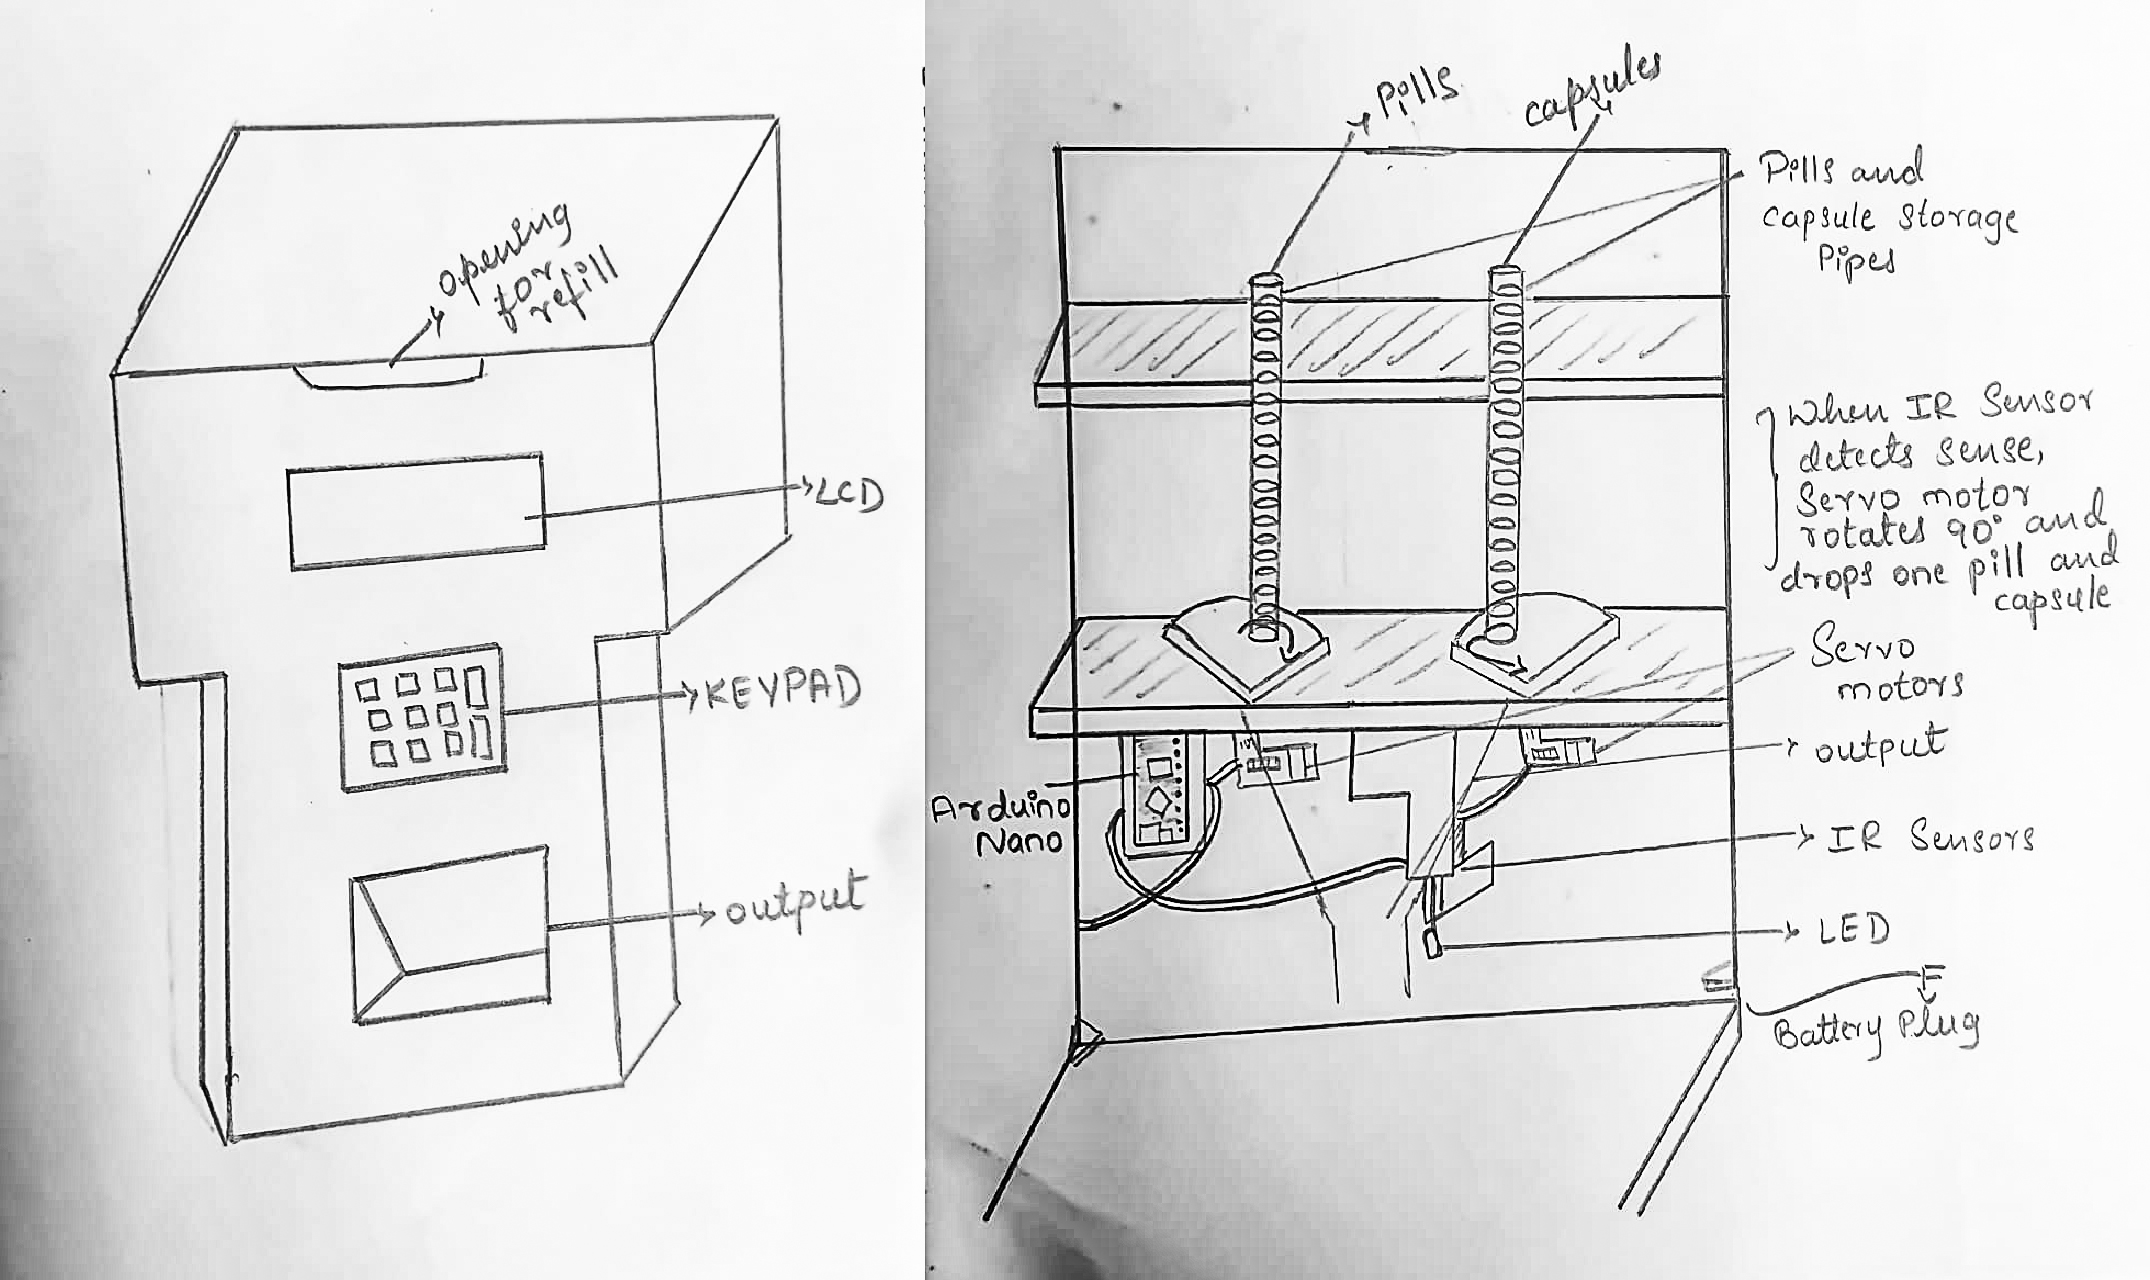 opening
for
refill
LCD
KEYPAD
output
Pills
capsules
Pills and
capsule storage
Pipes
When IR Sensor
detects sense,
Servo motor
rotates 90° and
drops one pill and
capsule
Servo
motors
output
Arduino
Nano
IR Sensors
LED
Battery Plug